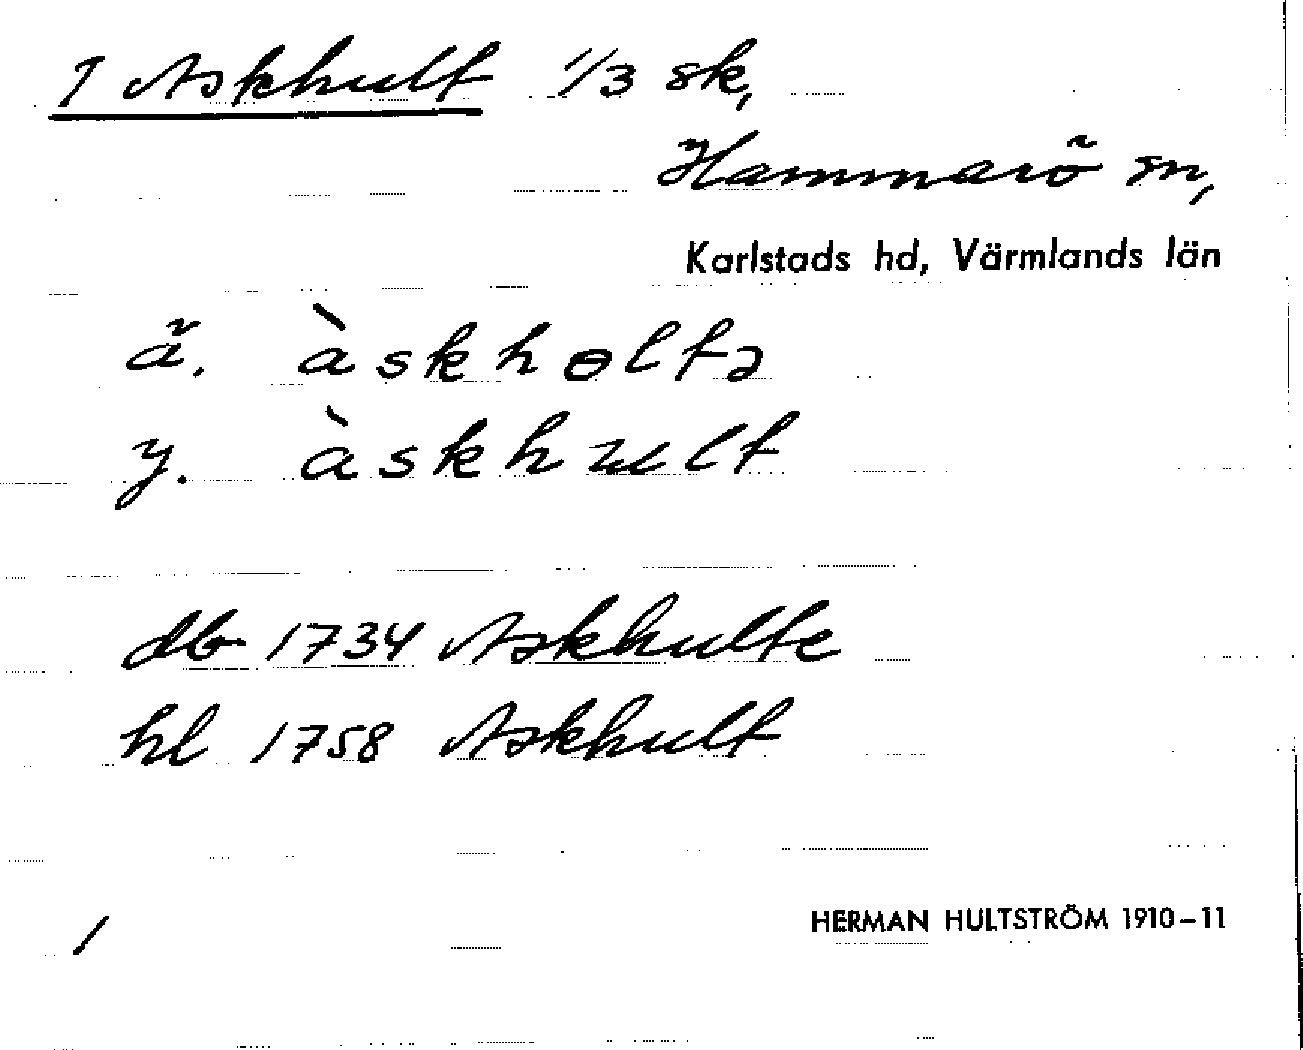 1 Askhult 1/3 sk,
Hammarö sn,
Karlstads hd, Värmlands län
ä. àskhɵltə
y. àskhult
db 1734 Askhulte
hl 1758 Askhult
/
HERMAN HULTSTRÖM 1910–11